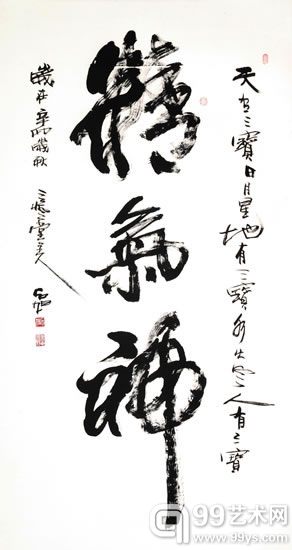 天有三寶日月星地有三寶水火風人有三寶
精氣神
歲在辛卯
秋
99艺术网
www.99ys.com